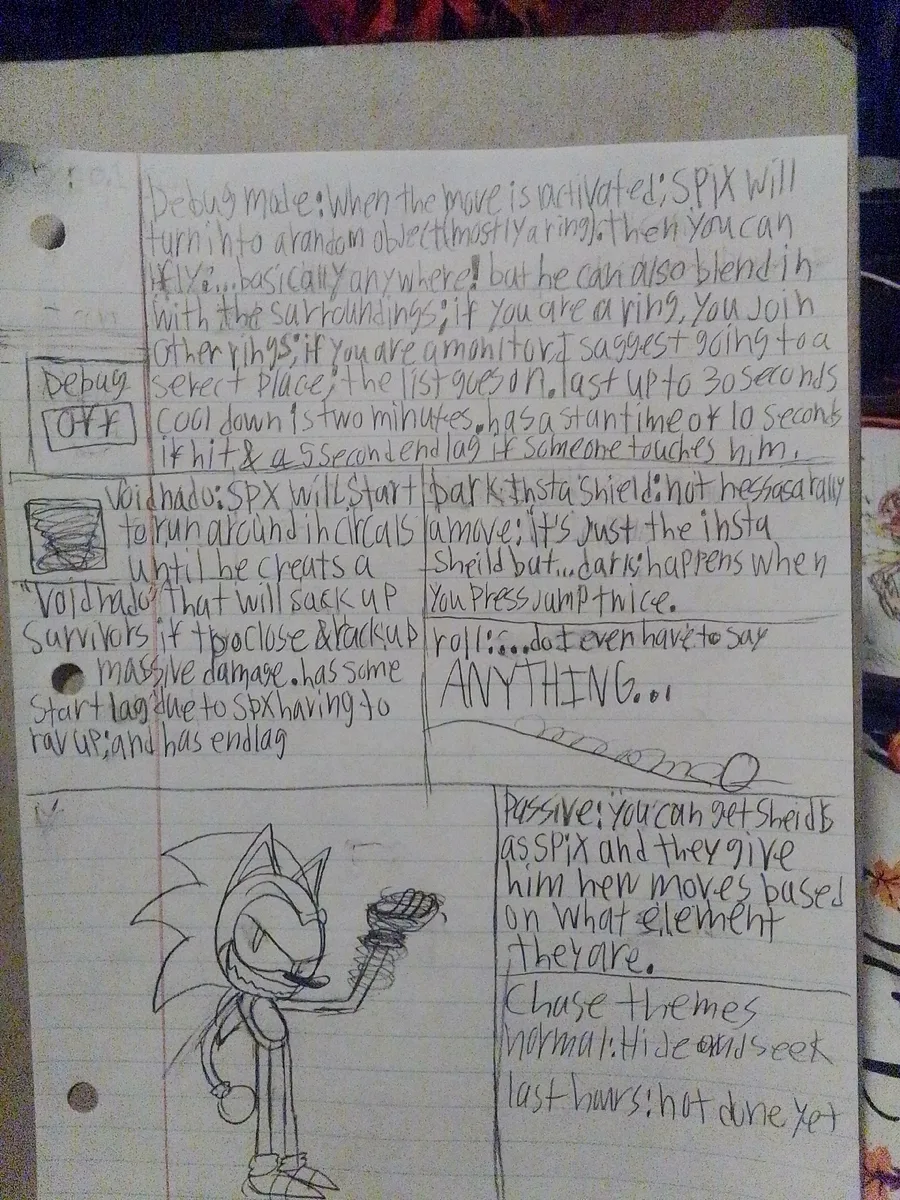 Debug mode: When the move is activated; SPiX Will
turn into a random object(mostly a ring). then you can
fly:...basically anywhere! but he can also blend in
with the surroundings; if you are a ring, you join
other rings; if you are a monitor, I saggest going to a
serect place; the list goes on. last up to 30 seconds
cool down is two minutes. has a stan time of 10 seconds
if hit & a 5 second endlag if someone touches him.
Debug
OFF
Voidnado: SPX Will Start
to run around in circals
until he creats a
"Voidnado" that will sack up
Survivors if too close & rack up
massive damage. has some
Start lag due to SpX having to
rav up; and has endlag
Dark insta Shield: not nessasarally
a move: it's Just the insta
Sheild but... dark: happens when
You press jump twice.
roll:....do I even have to say
ANYTHING...
Passive: You can get Sheilds
as SPiX and they give
him new moves based
on what element
they are.
Chase themes
normal: Hide and seek
last hours: not done yet